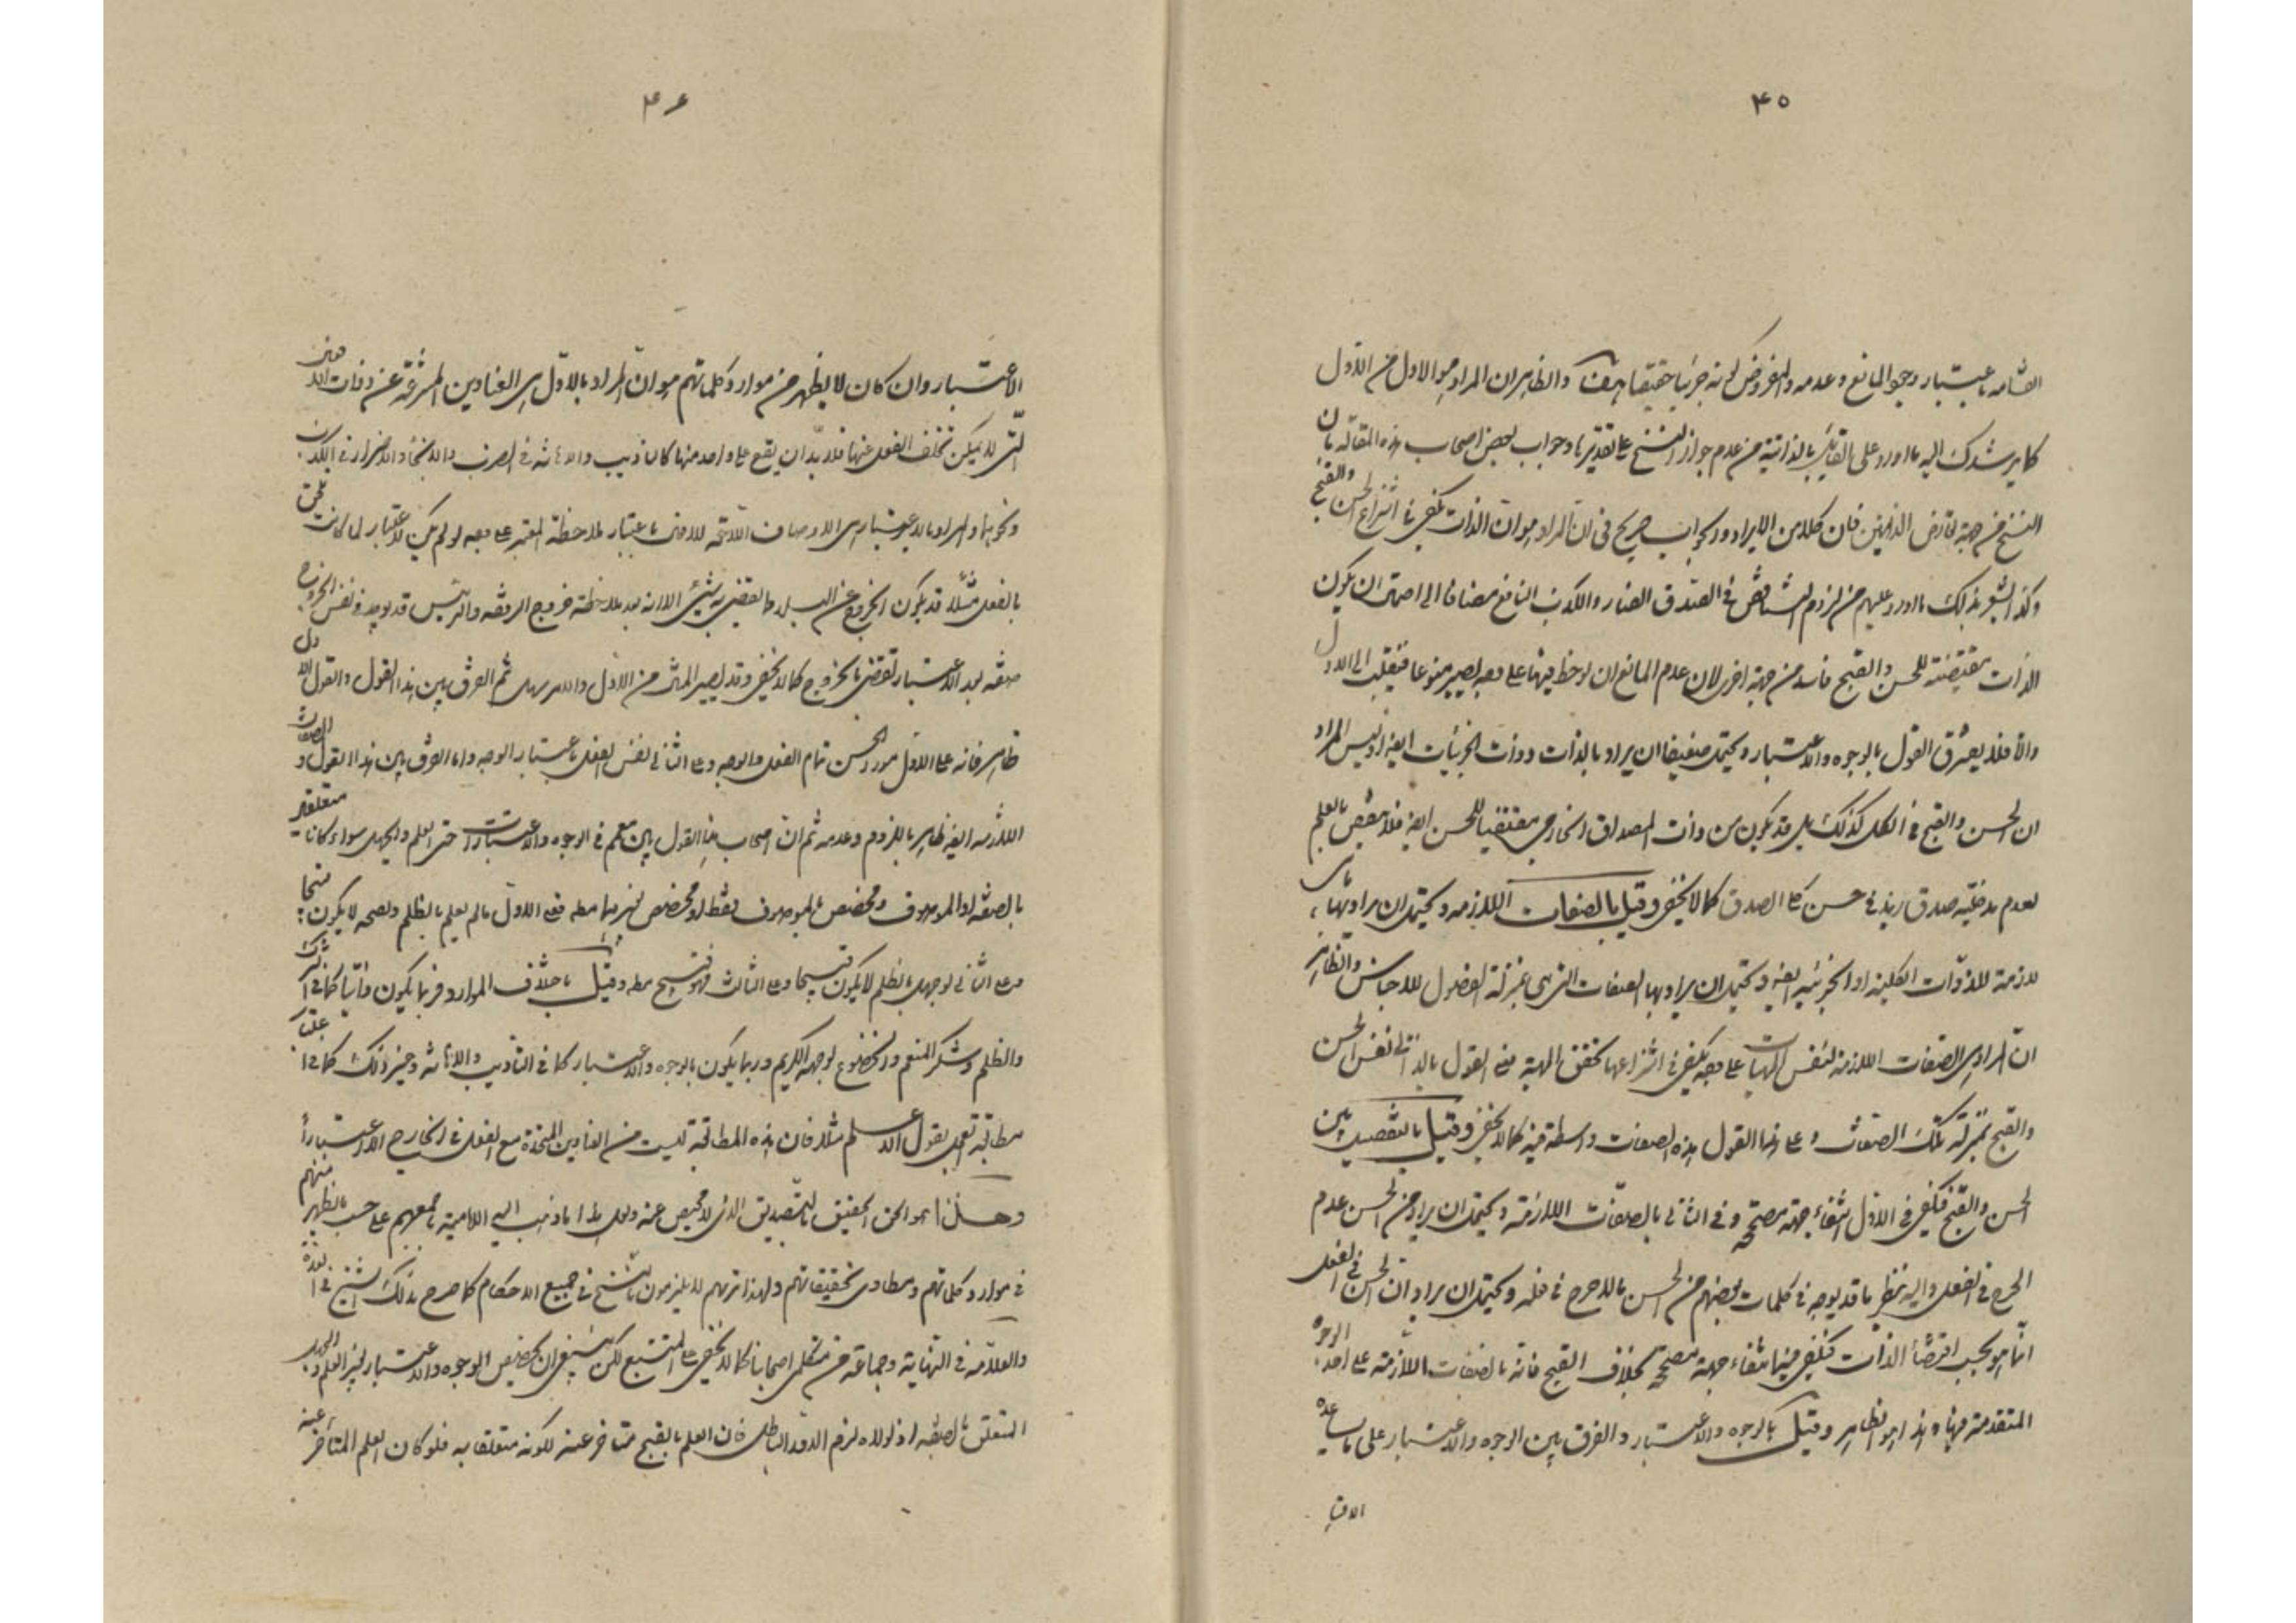 ۴۵
القسامه باعتبار وجود المانع وعدمه والمفروض كونه جزئيا حقيقيا هف والظاهر ان المراد هو الاول من الاول
كما يرشدك اليه ما اورد على القائل بالذاتية من عدم جواز النسخ على تقديرها وجواب بعض اصحاب هذه المقالة بان
النسخ من جهة تعارض الذاتيين فان كلا من الايراد والجواب صريح فى ان المراد هو ان الذات يكفى فى انتزاع الحسن والقبح
وكذا يشعر بذلك ما اورد عليهم من لزوم التناقض فى الصدق الضار والكذب النافع مضافا الى احتمال ان يكون
الذات مقتضية للحسن والقبح فاسد من جهة اخرى لان عدم المانع ان لوحظ فيها على وجه يصير منوعا فينقلب الى الاول
والا فلا يفترق القول بالوجوه والاعتبار ويحتمل ضعيفا ان يراد بالذات ذوات الجزئيات ايضا وليس المراد
ان الحسن والقبح فى الكل كذلك بل قد يكون من ذات المصداق الخارجى مقتضيا للحسن ايضا فلا ينتقض بالعلم
بعدم مدخلية صدق زيد فى حسن كلى الصدق كما لا يخفى وقيل بالصفات اللازمه ويحتمل ان يراد بها ما هى
لازمة للذوات الكلية او الجزئيه ايضا ويحتمل ان يراد بها الصفات التى هى بمنزلة الفصول للاجناس والظاهر
ان المراد هى الصفات اللازمة لنفس المهيات على وجه يكفى فى انتزاعها تحقق المهية ففى القول بالذاتى نفس الحسن
والقبح بمنزلة تلك الصفات وعلى هذا القول هذه الصفات واسطة فيه كما لا يخفى وقيل بالتفصيل بين
الحسن والقبح فيكفى فى الاول انتفاء جهة مقبحة وفى الثانى بالصفات اللازمة ويحتمل ان يراد من الحسن عدم
الحرج فى الفعل واليه ينظر ما قد يوجد فى كلمات بعضهم من الحسن بما لا حرج فى فعله ويحتمل ان يراد ان الحسن فى الفعل
انما هو بحسب اقتضاء الذات فيكفى فيه انتفاء جهة مقبحة بخلاف القبح فانه بالصفات اللازمة على احد الوجوه
المتقدمة فيها وهذا هو الظاهر وقيل بالوجوه والاعتبار والفرق بين الوجوه والاعتبار على ما يساعده
۴۶
الاعتبار وان كان لا يظهر من موارد كلماتهم هو ان المراد بالاول هى العناوين المنتزعة عن ذوات الافعال
التى لا يمكن تخلف الفعل عنها فلا بد ان يقع على واحد منها كالتاديب والاهانة فى الضرب والانجاء والاضرار فى الكذب
ونحوها والمراد بالاعتبار هى الاوصاف اللاحقة للافعال باعتبار ملاحظة المعتبر على وجه لو لم يكن الاعتبار لما كانت تلحق
بالفعل مثلا قد يكون الخروج عن البلد مما يقضى به شىء الا انه بعد ملاحظة خروج الرفقه والرئيس قد يوجد فى نفس الخروج
صفة بعد الاعتبار تقضى بالخروج كما لا يخفى وقد يصير المنشأ من الاول والامر سهل ثم الفرق بين هذا القول والقول الاول
ظاهر فانه على الاول مورد الحسن تمام الفعل والوجه وعلى الثانى نفس الفعل باعتبار الوجه واما الفرق بين هذا القول والصفات
اللازمه ايضا ظاهر باللزوم وعدمه ثم ان اصحاب هذا القول بين معمم فى الوجوه والاعتبارات حتى العلم والجهل سواء كانا متعلقين
بالصفه او الموصوف ومخصص بالموصوف فقط او مخصص بغيرهما مطه فعلى الاول ما لم يعلم بالظلم وقبحه لا يكون قبيحا
وعلى الثانى لو جهل بالظلم لا يكون قبيحا وعلى الثالث فهو قبيح مطه وقيل باختلاف الموارد فربما يكون ذاتيا كما فى الشرك
والظلم وشكر المنعم والخضوع لوجهه الكريم وربما يكون بالوجوه والاعتبار كما فى التأديب والاهانه وغير ذلك كما فى
مطالبة العبد بقول الاعلم مثلا فان هذه المطالبة ليست من العناوين المتحدة مع الفعل فى الخارج الا اعتبارا
وهذا هو الحق الحقيق بالتصديق الذى لا محيص عنه ولعل هذا ما ذهب اليه الامامية باجمعهم على حسب ما يظهر منهم
فى موارد كلماتهم ومطاوى تحقيقاتهم ولهذا تريهم لا يلتزمون بالنسخ فى جميع الاحكام كما صرح بذلك الشيخ فى العدة
والعلامه فى النهاية وجماعة من متكلمى اصحابنا كما لا يخفى على المتتبع لكن ينبغى ان يخصص الوجوه والاعتبار بغير العلم والجهل
المتعلق بالصفه اذ لولاه لزم الدور الباطل فان العلم بالقبح متاخر عنه لكونه متعلقا به فلو كان العلم المتأخر عنه